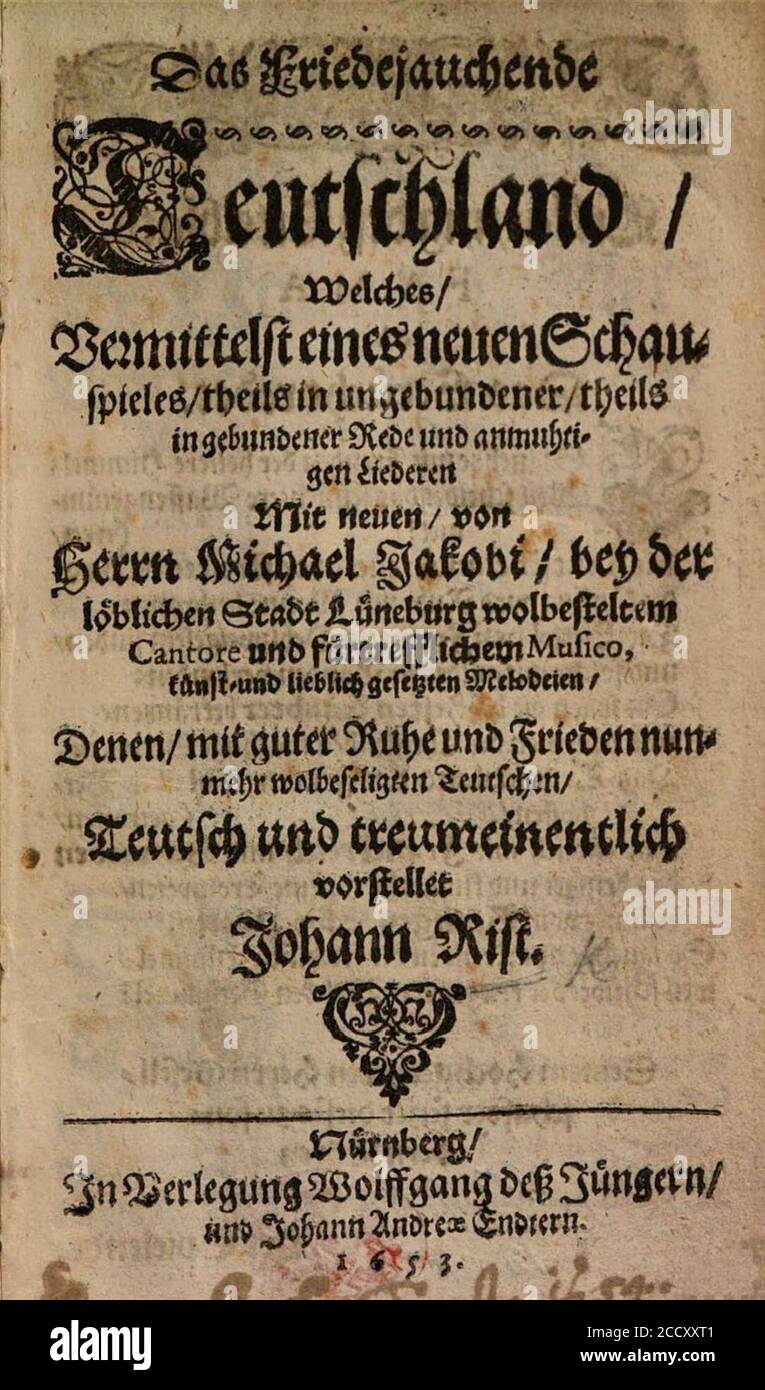 Das Friedejauchende
Teutschland /
Welches /
Vermittelst eines neuen Schau-
spieles / theils in ungebundener / theils
in gebundener Rede und anmuhti-
gen Liederen
Mit neuen / von
Herrn Michael Jakobi / bey der
löblichen Stadt Lüneburg wolbesteltem
Cantore und fürtrefflichem Musico,
künst- und lieblich gesetzten Melodeien /
Denen / mit guter Ruhe und Frieden nun-
mehr wolbeseligten Teutschen /
Teutsch und treumeinentlich
vorstellet
Johann Rist.
Nürnberg /
In Verlegung Wolffgang deß Jüngern /
und Johann Andreæ Endtern.
1653.
alamy
alamy
alamy
alamy
Image ID: 2CCXXT1
www.alamy.com